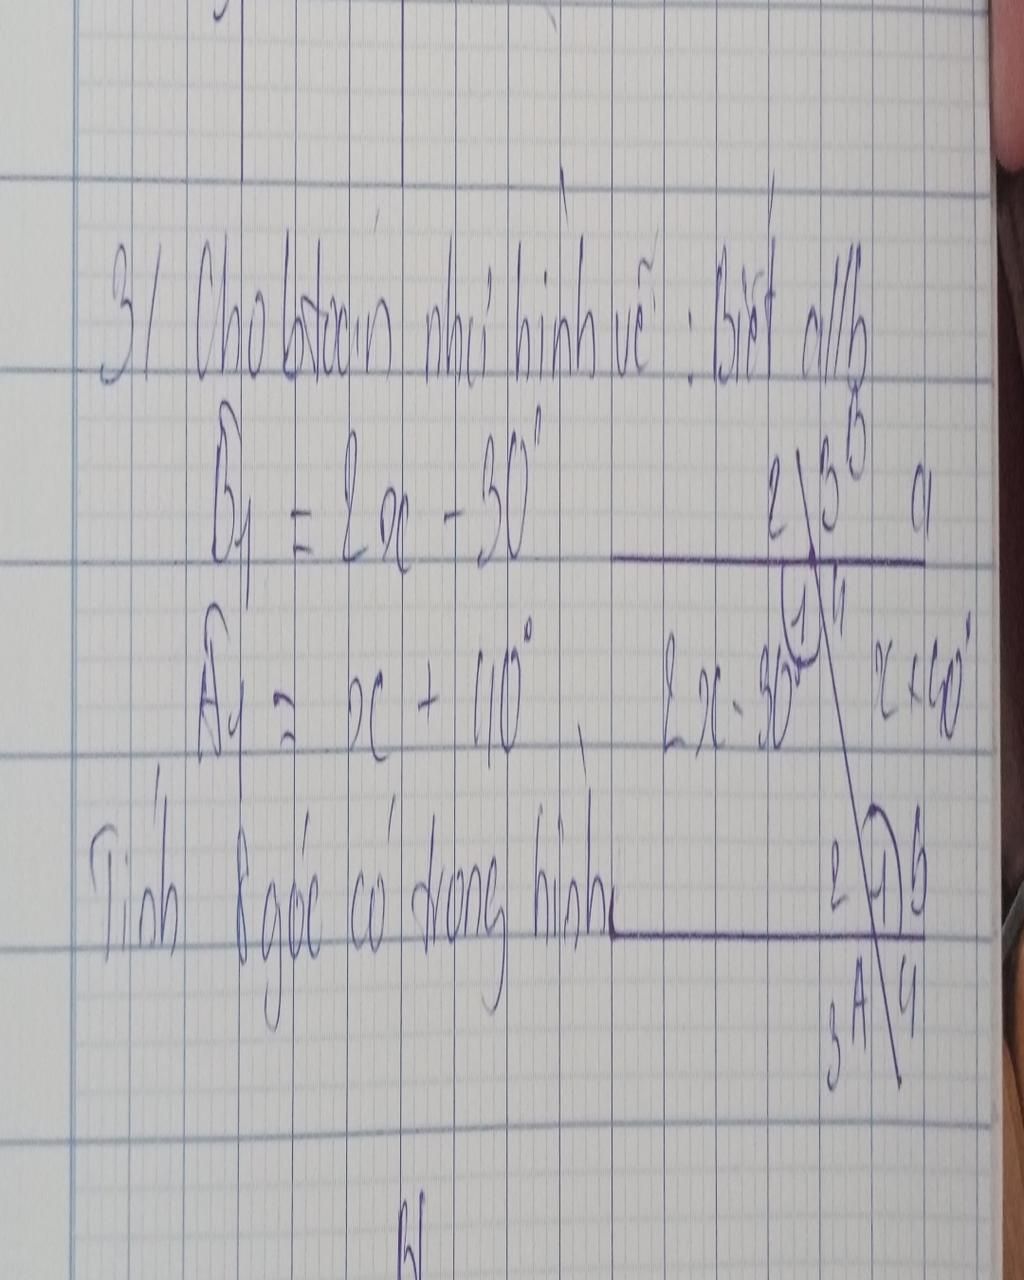 3/ Cho btoán như hình vẽ : Biết a//b
B̂1 = 2x - 30°
Â1 = x + 40°
Tính 8 góc có trong hình
2 3 B a
1 4
2x - 30° x + 40°
2 1 b
3 A 4